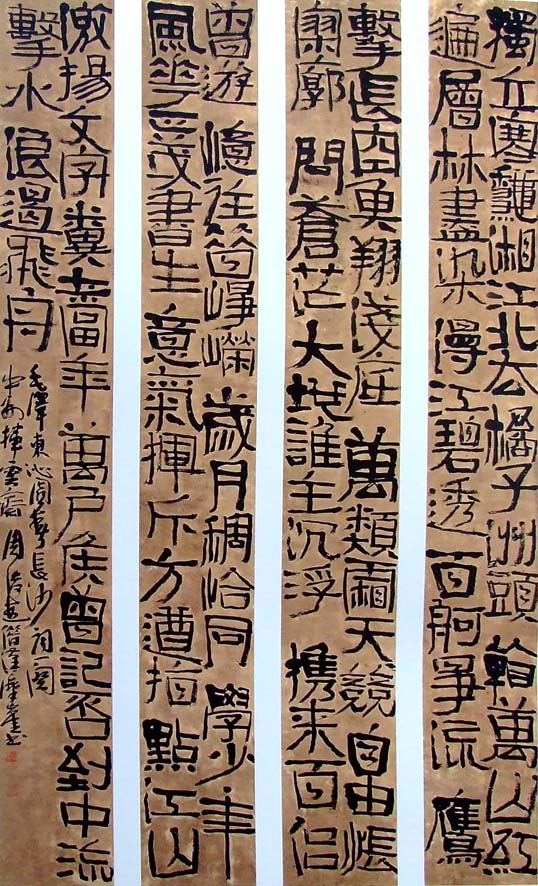 獨立寒龝湘江北去橘子洲頭看萬山紅
遍層林盡染漫江碧透百舸爭流鷹
擊長空魚翔淺底萬類霜天競自由悵
寥廓問蒼茫大地誰主沉浮携来百侣
曾遊憶往昔崢嶸歲月稠恰同學少年
風華正茂書生意氣揮斥方遒指點江山
激揚文字糞土當年萬戶侯曾記否到中流
擊水浪遏飛舟
毛澤東沁園春長沙詞一闋